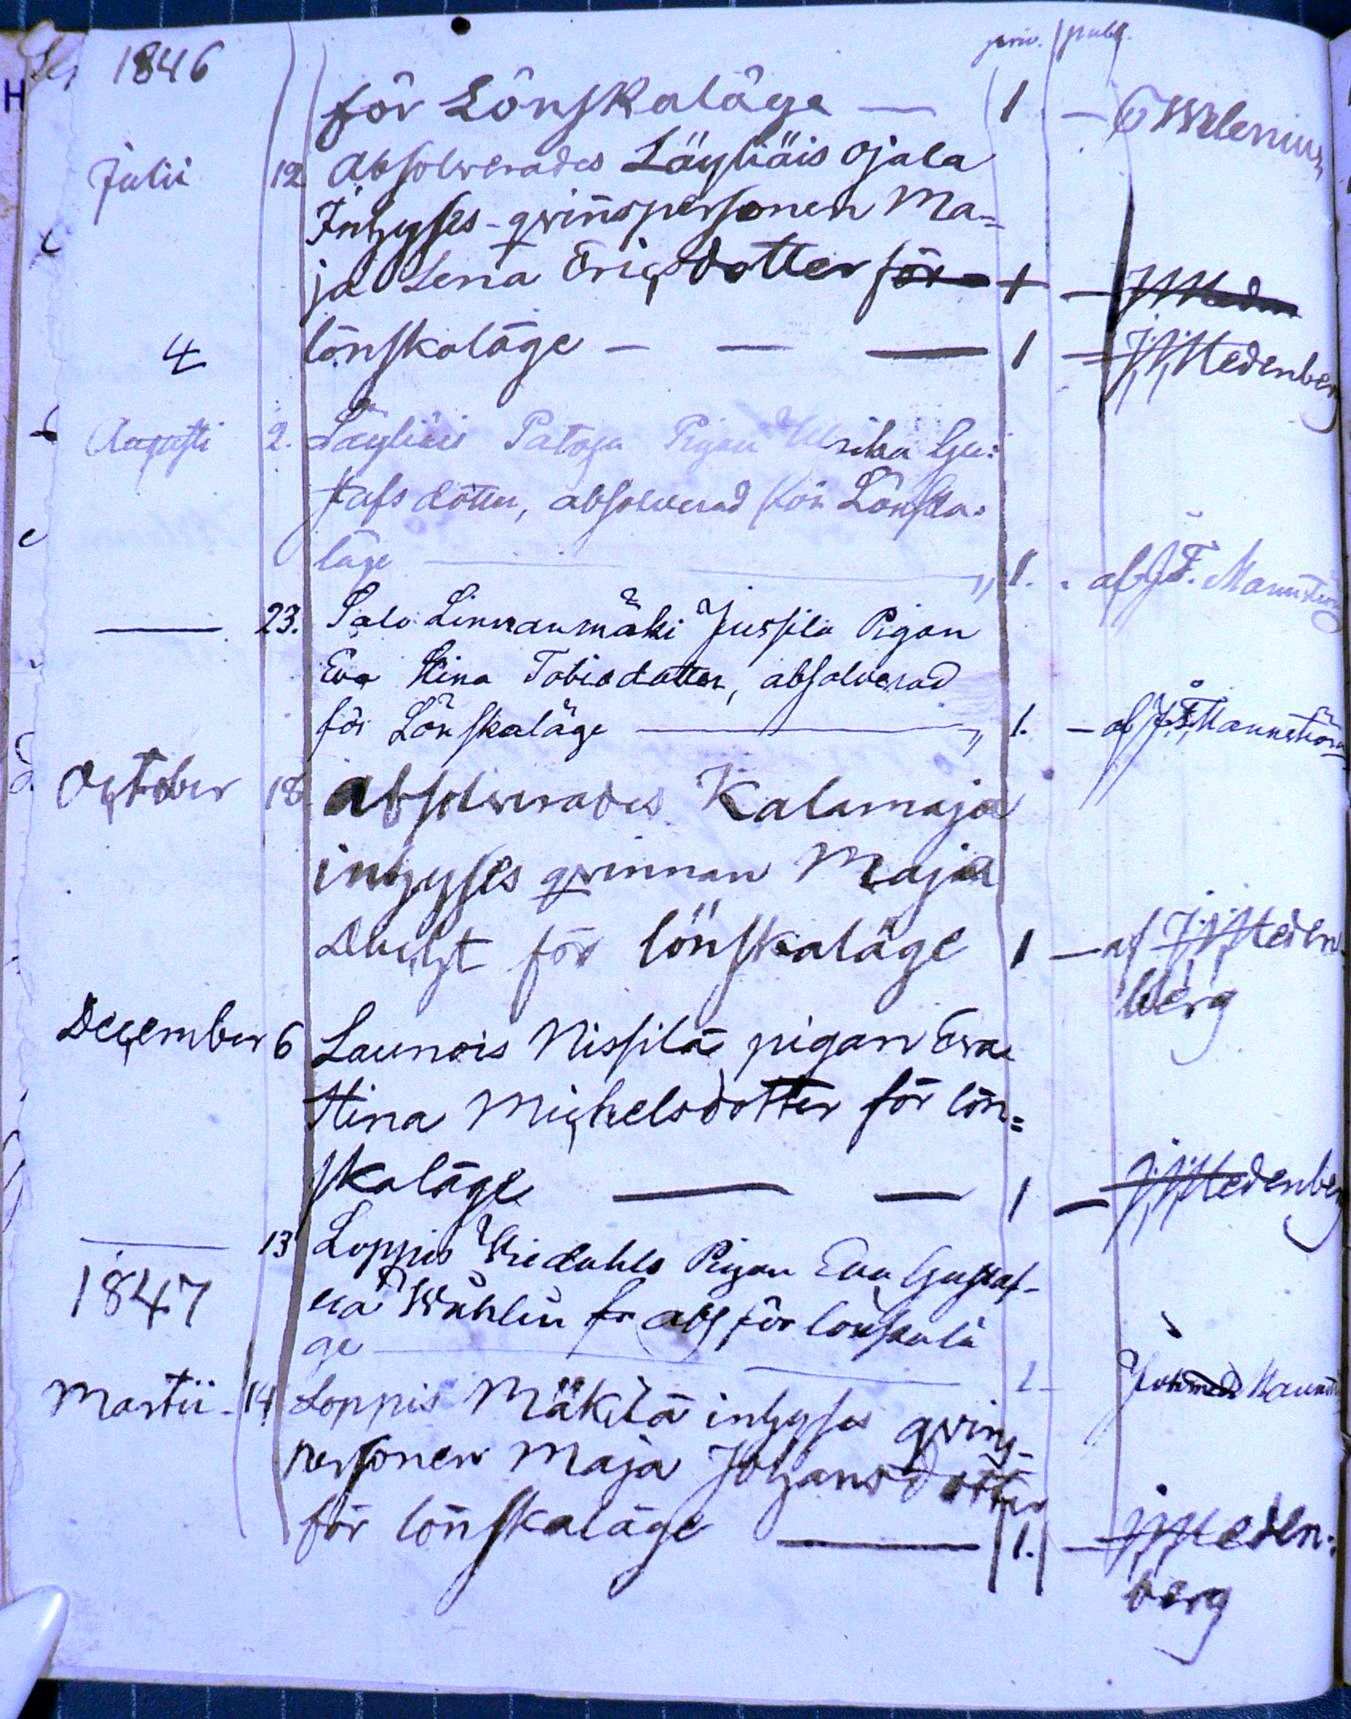 1846 priv. publ.
för Lönskaläge — 1 —
Julii 12 Absolverades Läyliäis Ojala
Inhyses-qvinspersonen Ma=
ja Lena Ericsdotter för 1 —
4 lönskaläge — — — 1 — Hedenberg
Augusti 2. Läyliäis Pigan Ulrika Gu:
stafsdotter, absolverad för Lönska-
läge — 1. af J.F. Mannström
— 23. Salo Linnanmäki Jussila Pigan
Eva Stina Tobiedotter, absolverad
för Lönskaläge — 1. — af J.F. Mannström
October 18 Absolverades Kalamaja
inhyses qvinnan Maja
för lönskaläge 1 — af Heden
berg
December 6 Launois Nissilä pigan Eva
Stina Michelsdotter för lön=
skaläge — — 1 — Hedenberg
— 13 Loppis Pigan Eva Gustaf-
1847 va Wahlin abs för lönskalä
ge —
Martii 14 Loppis Mäkilä inhyses qvins-
personen Maja Johansdotter
för lönskaläge — 1. — Heden:
berg